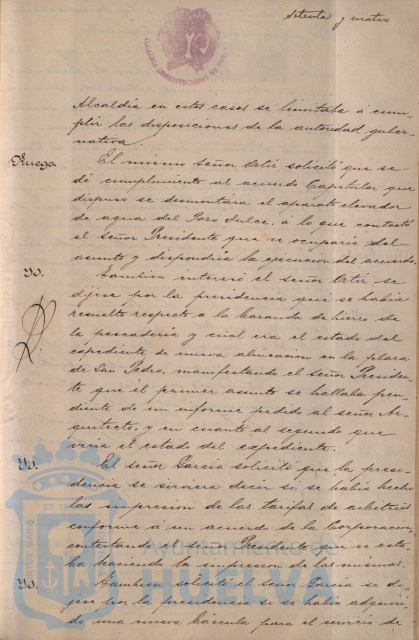 Setenta y cuatro
ALCALDIA CONSTITUCIONAL DE HUELVA
Alcaldía en estos casos se limitaba á cum-
plir las disposiciones de la autoridad guber-
nativa.
Ruego. El mismo Señor Ortiz solicitó que se
dé cumplimiento al acuerdo Capitular que
dispuso se desmontara el aparato elevador
de agua del Pozo dulce, á lo que contestó
el Señor Presidente que se ocuparia del
asunto y dispondria la ejecucion del acuerdo.
Yd. Tambien interesó el Señor Ortiz se
dijese por la presidencia qué se habia
resuelto respecto á la baranda de hierro de
la pescaderia y cual era el estado del
expediente de nueva alineacion en la plaza
de San Pedro, manifestando el Señor Presiden-
te que el primer asunto se hallaba pen-
diente de un informe pedido al Señor Ar-
quitecto, y en cuanto al segundo que
veria el estado del expediente.
Yd. El Señor Garcia solicitó que la presi-
dencia se sirviera decir si se habia hecho
la impresion de las tarifas de arbitrios
conforme á un acuerdo de la Corporacion,
contestando el Señor Presidente que se esta-
ba haciendo la impresion de las mismas.
Yd. Tambien solicitó el Señor Garcia se di-
jese por la presidencia si se habia adquiri-
do una nueva báscula para el servicio de
Ayuntamiento de
HUELVA